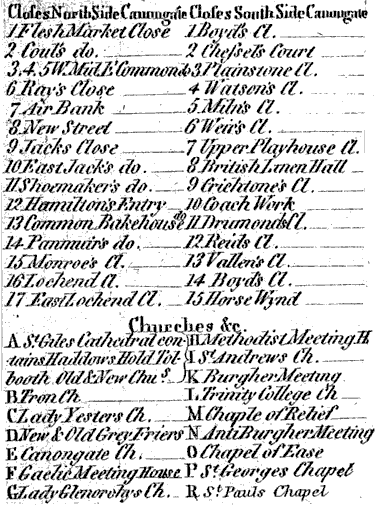 Closes North Side Canongate
1 Flesh Market Close
2 Coul's do.
3.4.5 W. Mid. E Commond's
6 Ray's Close
7 Air Bank
8 New Street
9 Jacks Close
10 East Jack's do.
11 Shoemaker's do.
12 Hamilton's Entry
13 Common Bakehouse do
14 Panmur's do.
15 Monroe's Cl.
16 Lochend Cl.
17 East Lochend Cl.
Closes South Side Canongate
1 Boyd's Cl.
2 Chessel's Court
3 Plainstone Cl.
4 Watson's Cl.
5 Miln's Cl.
6 Weir's Cl.
7 Upper Playhouse Cl.
8 British Linen Hall
9 Crichtone's Cl.
10 Coach Work
11 Drumonds Cl.
12 Reids Cl.
13 Vallen's Cl.
14 Boyd's Cl.
15 Horse Wynd
Churches &c.
A St. Giles Cathedral con
tains Haddows Hold Tol-
booth Old & New Chus.
B Tron Ch.
C Lady Yesters Ch.
D New & Old Grey Friers
E Canongate Ch.
F Gaelic Meeting House
G Lady Glenorchys Ch.
H Methodist Meeting H
I St. Andrews Ch.
K Burgher Meeting
L Trinity College Ch
M Chaple of Relief
N Anti Burgher Meeting
O Chapel of Ease
P St. Georges Chapel
R St. Pauls Chapel